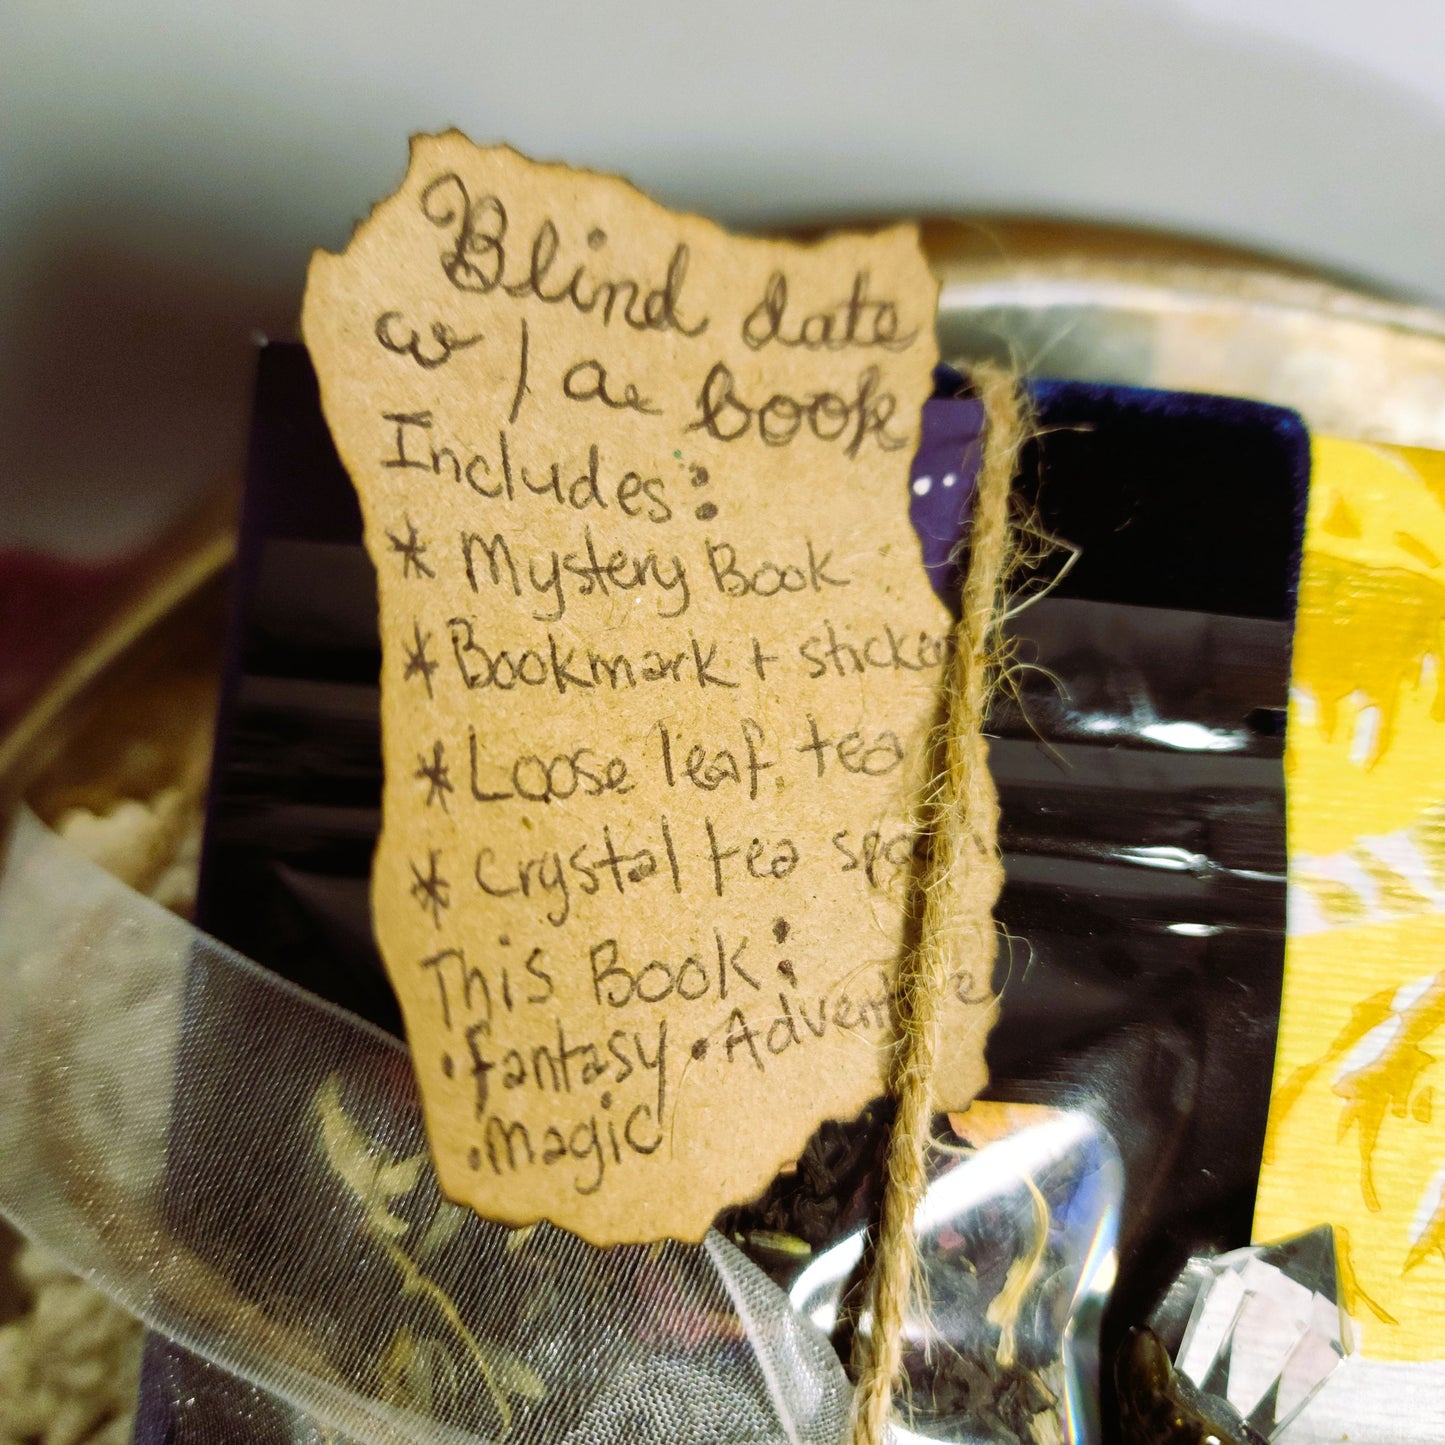 Blind date
w/a book
Includes:
* Mystery Book
* Bookmark + sticker
* Loose leaf tea
* Crystal tea spoon
This Book:
• fantasy • Adventure
• magic